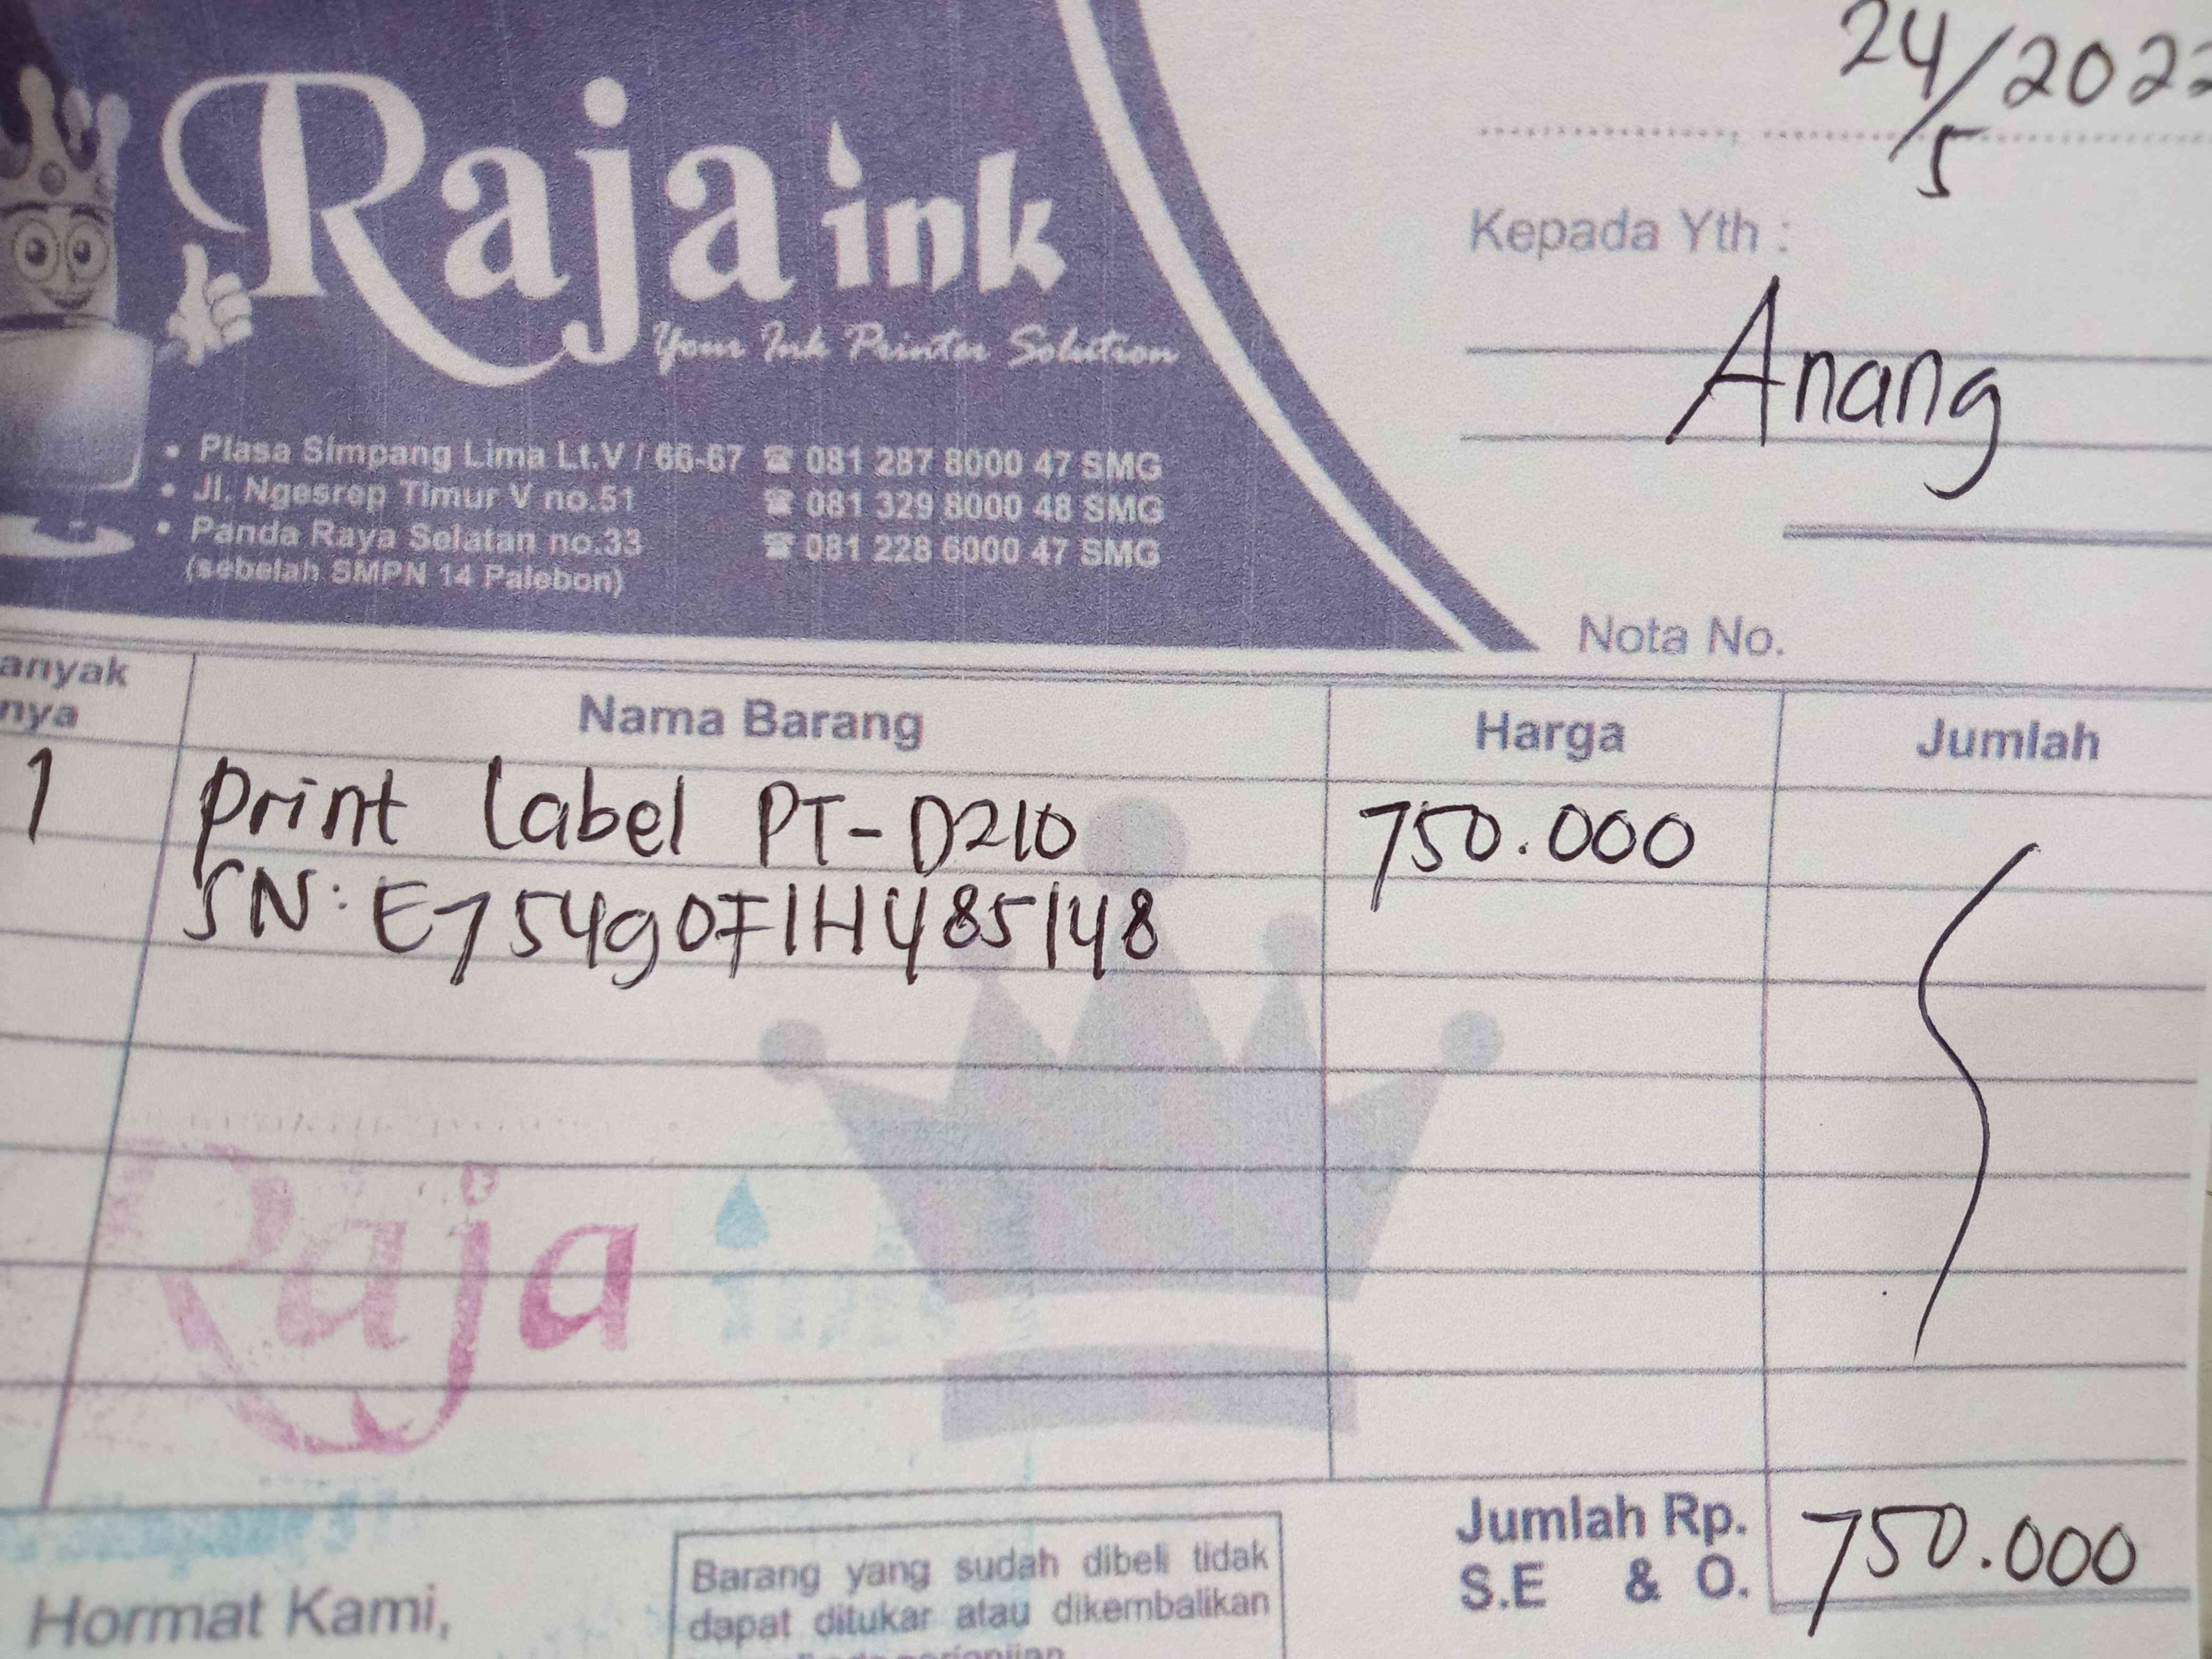 24/5 2022
Raja ink
Your Ink Printer Solution
Kepada Yth :
Anang
• Plasa Simpang Lima Lt.V / 66-67 ☎ 081 287 8000 47 SMG
• Jl. Ngesrep Timur V no.51 ☎ 081 329 8000 48 SMG
• Panda Raya Selatan no.33 ☎ 081 228 6000 47 SMG
(sebelah SMPN 14 Palebon)
Nota No.
anyak
nya
Nama Barang
Harga
Jumlah
1 print label PT-D210 750.000
SN: E754g0F1H485148
Raja ink
Jumlah Rp. 750.000
S.E & O.
Hormat Kami,
Barang yang sudah dibeli tidak
dapat ditukar atau dikembalikan